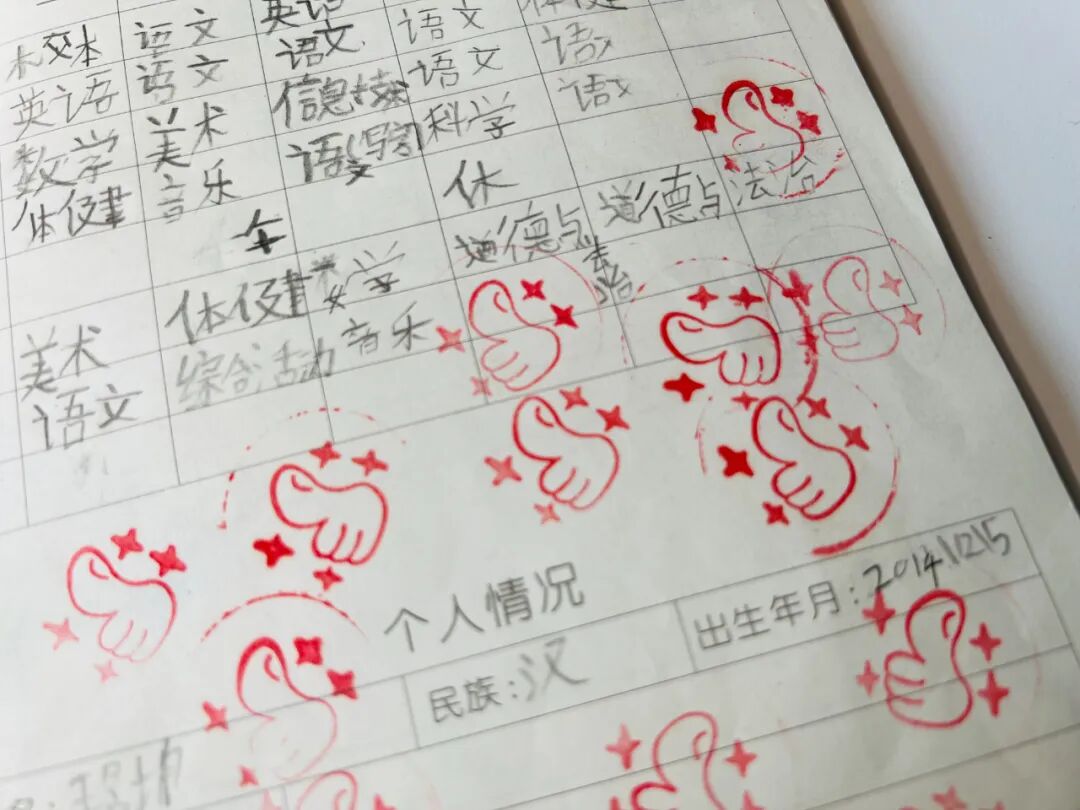 语文 英语 语文 体健
英语 语文 语文 语文 语
数学 美术 信息技术 科学 语文
体健 音乐 语文
午 休
体健 数学 道德与法治 道德与法治
美术 综合活动 音乐
语文
个人情况
民族:汉 出生年月:2014\12\5